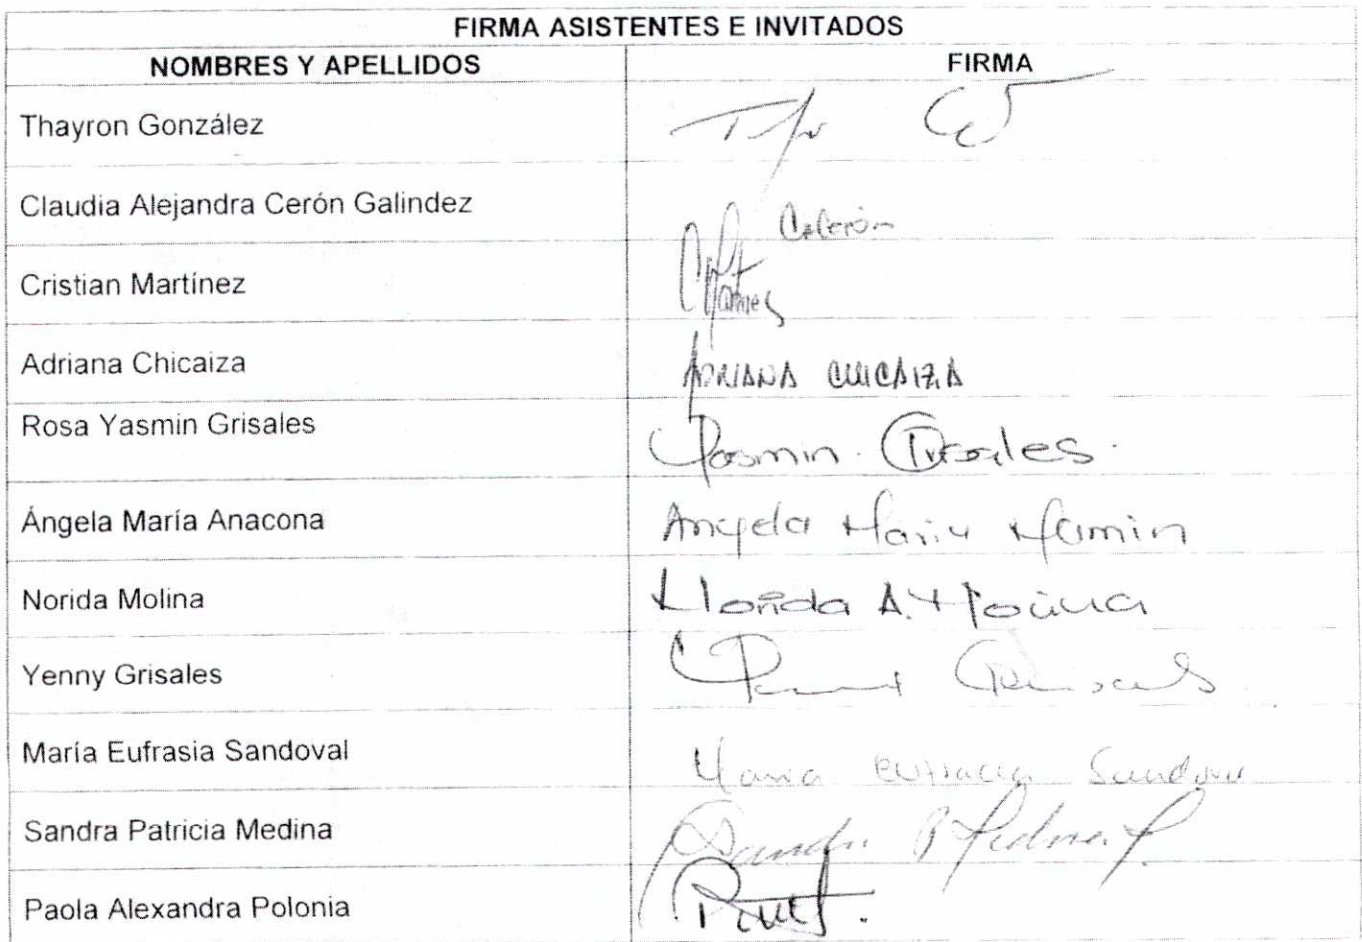 FIRMA ASISTENTES E INVITADOS
NOMBRES Y APELLIDOS FIRMA
Thayron González
Claudia Alejandra Cerón Galindez
Cristian Martínez
Adriana Chicaiza ADRIANA CHICAIZA
Rosa Yasmin Grisales Yasmin Grisales
Ángela María Anacona Angela Maria
Norida Molina Norida A. Molina
Yenny Grisales
María Eufrasia Sandoval Maria Sandoval
Sandra Patricia Medina Sandra P Medina
Paola Alexandra Polonia